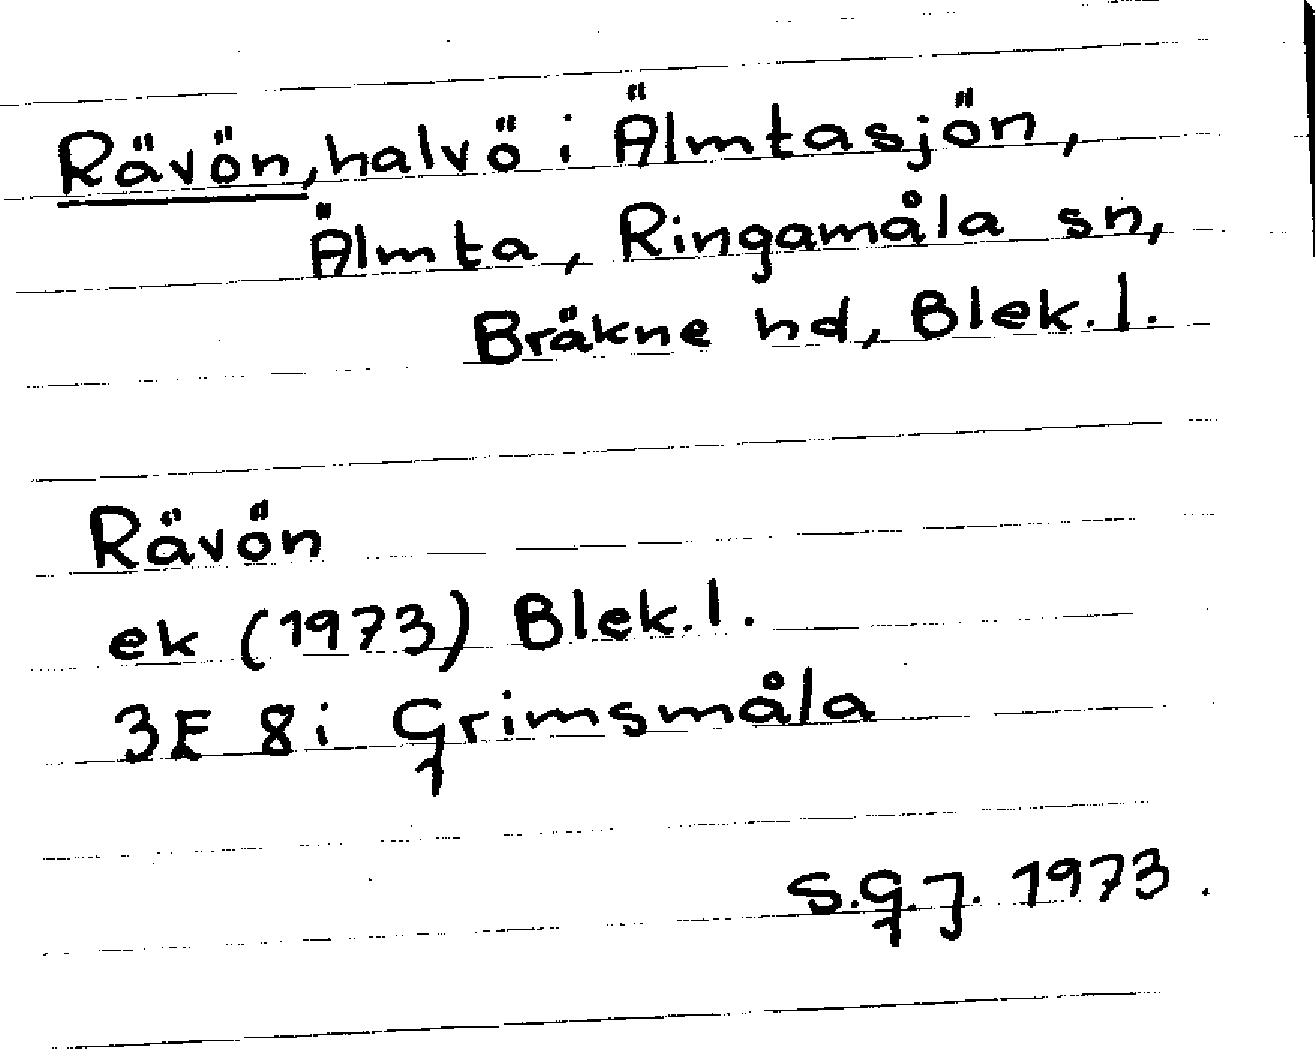 Rävön, halvö i Älmtasjön,
Älmta, Ringamåla sn,
Bräkne hd, Blek. l.
Rävön
ek (1973) Blek. l.
3F 8i Grimsmåla
S.G.J. 1973.